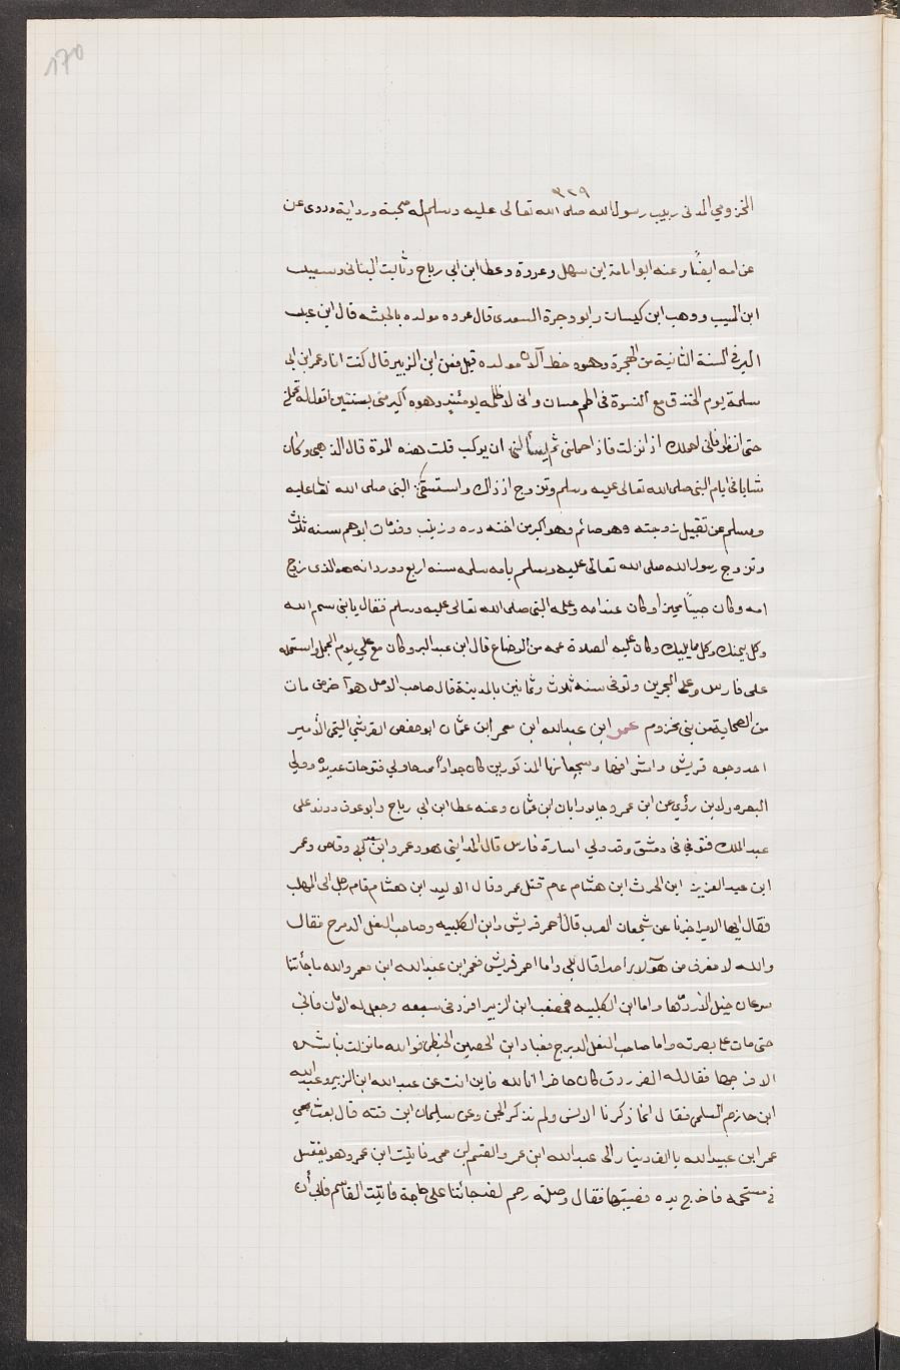 170
٣٢٩
المخزومي المدنى ربيب رسول الله صلى الله تعالى عليه وسلم له صحبة ورواية وروى عن
عن امه ايضًا وعنه ابوامامة ابن سهل وعروة وعطا ابن ابى رباح وثابت البنانى وسعيد
ابن المسيب ووهب ابن كيسان وابو وجرة السعدى قال عروه مولده بالحبشه قال ابن عبد
البر فى السنة الثانية من الهجرة وهو مولده قبل فعن ابن الزبير قال كنت انا وعمر ابن ابى
سلمة يوم الخندق مع النسوة فى اطم حسان وانى لا ظلمه يومئيذ وهوه اكبر منى بسنتين اقول له تحملنى
حتى انظر فانى لحملك اذا نزلت فاذا حملنى ثم يسألنى ان يركب قلت هذه المرة قال الذهبى وكان
شابا فى ايام النبى صلى الله تعالى عليه وسلم وتزوج اذ ذاك واستفتى النبى صلى الله تعا عليه
وسلم عن تقبيل زوجته وهو صائم وهو اكبر من اخته دره وزينب وقد مات ابوهم سنه ثلاث
وتزوج رسول الله صلى الله تعالى عليه وسلم بامه سلمه سنه اربع وورد انه هو الذى زوج
امه وكان صبيًا مميزا وكان عند امه وعلمه النبى صلى الله تعالى عليه وسلم فقال يابنى سم الله
وكل بيمنك وكل مما يليك وكان عليه الصلاة عمه من الرضاع قال ابن عبد البر وكان مع علي يوم الجمل واستعمله
على فارس وعلى البحرين وتوفى سنه ثلاث وثمانين بالمدينة قال صاحب الاصل هو آخر من مات
من الصحابة من بنى مخزوم عمر ابن عبدالله ابن معمر ابن عثمان ابوحفص القرشي التيمى الأمير
احد وجوه قريش واشرافها وشجعانها المذكورين كان جوادًا ولي فتوحات عديدة وولي
البصره ابن عمر وجابر وابان ابن عثمان وعنه عطا ابن ابى رباح وابوعون ووفد على
عبد الملك فتوفى فى دمشق وقد ولي امارة فارس قال المداينى هو وعمر وابن ابى وقاص وعمر
ابن عبد العزيز ابن الحرث ابن هشام عام قتل عمر وقال الوليد ابن هشام قام رجل الى المهلب
فقال ايها الامير اخبرنا عن شجعان العرب قال احمر قريش وابن الكلبيه وصاحب النعل الديرج فقال
والله لا نعرف من هؤلا احدا قال بلى واما احمر قريش فعمر ابن عبيد الله ابن معمر والله ما جأتنا
سرعان خيل الا ردّها واما ابن الكلبيه فمصعب ابن الزبير افرد فى سبعه وجعل له الامان فابى
حتى مات على بصرته واما صاحب النعل الديرج فعباد ابن الحصين الحبطى فوالله ما نزلت بنا شده
الا فرجها فقال له الفرزدق كان حاضرا انا لله فاين انت عن عبد الله ابن الزبير وعبد الله
ابن حازم السلمى فقال انما ذكرنا الانس ولم نذكر الجن وعن سليمان ابن قته قال بعث معي
عمر ابن عبيد الله بالف دينار الى عبد الله ابن عمر والقسم ابن محمد فاتيت ابن عمر وهو يغتسل
فى مستحمه فاخرج يده فصببتها فقال وصلته رحم لقد جائتنا على حاجة فاتيت القاسم فابى أن